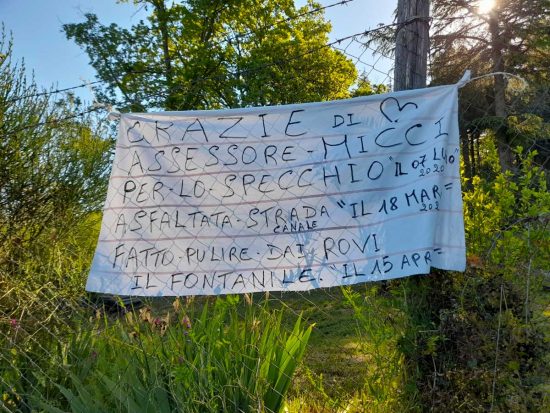 GRAZIE DI ♡
ASSESSORE-MICCI
PER-LO-SPECCHIO "IL 07 LUGLIO"
2020
ASFALTATA-STRADA "IL 18 MAR=
CANALE
FATTO-PULIRE-DAI ROVI
IL FONTANILE "IL 15 APR=